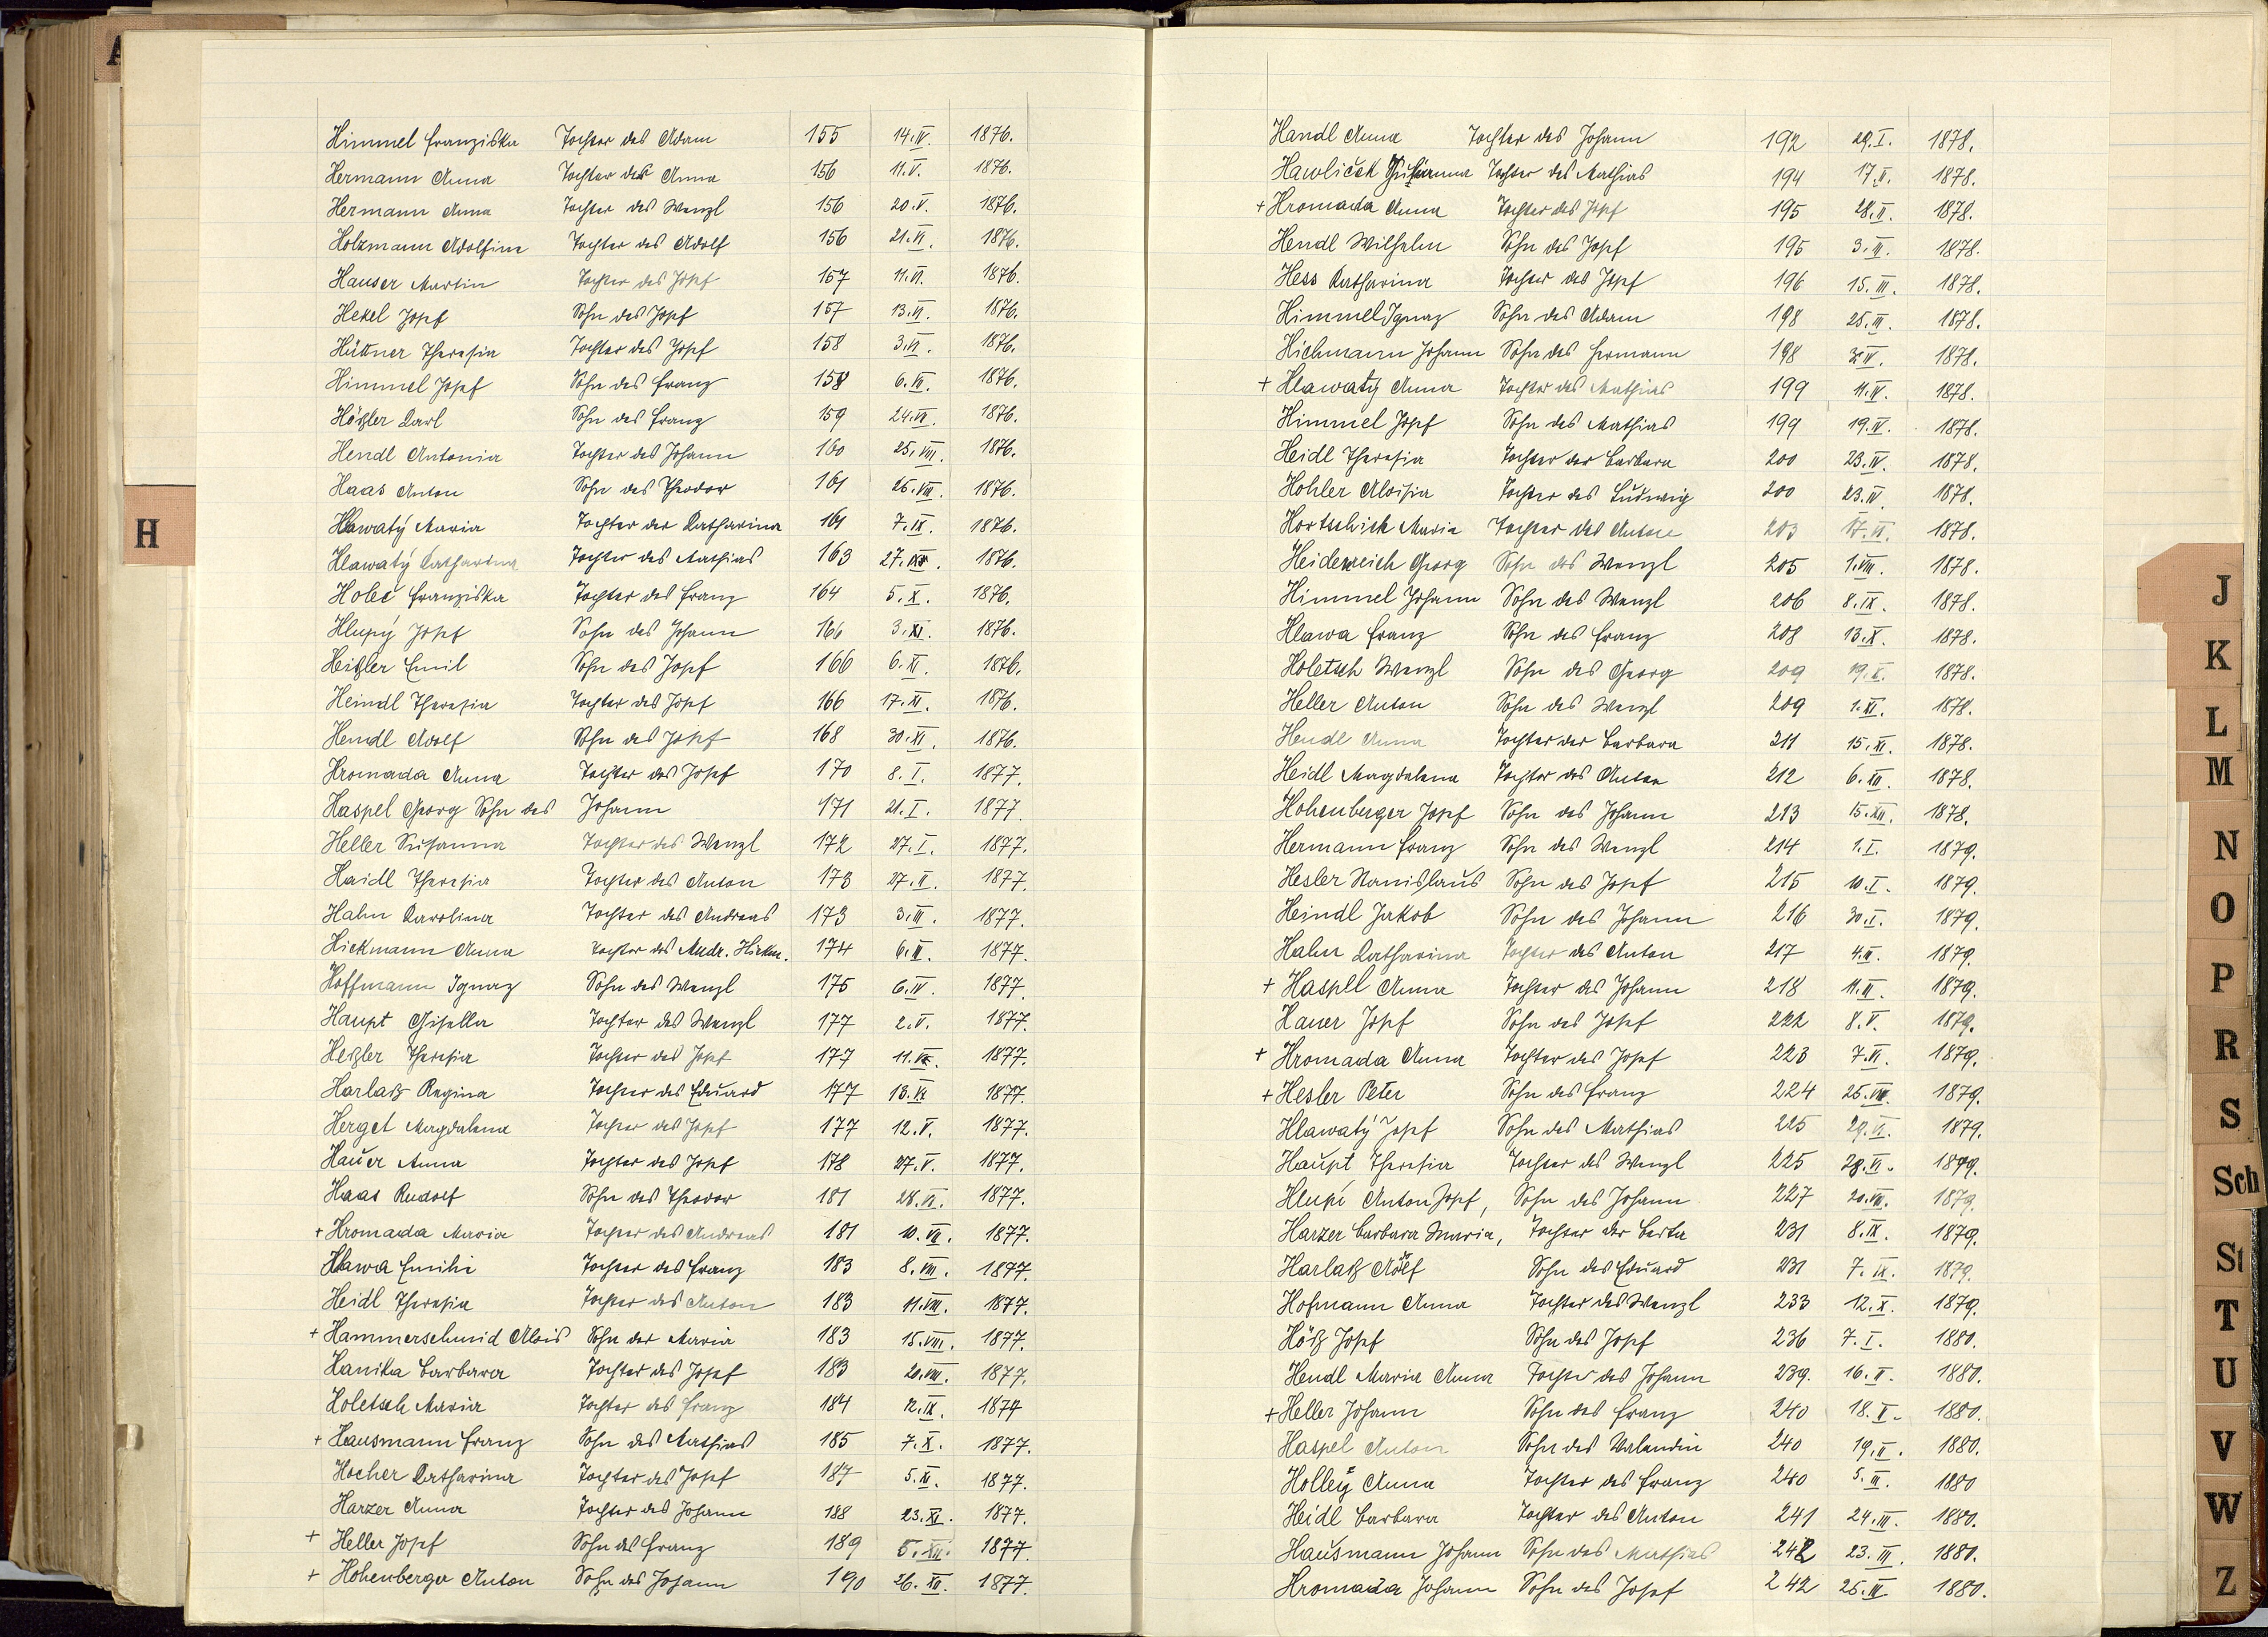 A
H
Himmel Franziska Tochter des Adam 155 14.IV. 1876.
Hermann Anna Tochter der Anna 156 11.V. 1876.
Hermann Anna Tochter des Wenzl 156 20.V. 1876.
Holzmann Adolfine Tochter des Adolf 156 21.VI. 1876.
Hauser Martin Tochter des Josef 157 11.VI. 1876.
Hekel Josef Sohn des Josef 157 13.VI. 1876.
Hüttner Theresia Tochter des Josef 158 3.VI. 1876.
Himmel Josef Sohn des Franz 158 6.VII. 1876.
Hößler Karl Sohn des Franz 159 24.VII. 1876.
Hendl Antonia Tochter des Johann 160 25.VIII. 1876.
Haas Anton Sohn des Theodor 161 26.VIII. 1876.
Hlawatý Maria Tochter der Katharina 161 7.IX. 1876.
Hlawatý Katharina Tochter des Mathias 163 27. 1876.
Holeč Franziska Tochter des Franz 164 5.X. 1876.
Hlupý Josef Sohn des Johann 166 3.XI. 1876.
Heißler Emil Sohn des Josef 166 6.XI. 1876.
Heindl Theresia Tochter des Josef 166 17.XI. 1876.
Hendl Adolf Sohn des Josef 168 30.XI. 1876.
Hromada Anna Tochter des Josef 170 8.I. 1877.
Haspel Georg Sohn des Johann 171 21.I. 1877.
Heller Susanna Tochter des Wenzl 172 27.I. 1877.
Haidl Theresia Tochter des Anton 173 27.II. 1877.
Hahn Karolina Tochter des Andreas 173 3.III. 1877.
Hickmann Anna Tochter des Andr. Hickm. 174 6.III. 1877.
Hoffmann Ignaz Sohn des Wenzl 175 6.IV. 1877.
Haupt Gisella Tochter des Wenzl 177 2.V. 1877.
Heßler Theresia Tochter des Josef 177 11. 1877.
Harlaß Regina Tochter des Eduard 177 13. 1877.
Herget Magdalena Tochter des Josef 177 12.V. 1877.
Hauer Anna Tochter des Josef 178 27.V. 1877.
Haas Rudolf Sohn des Theodor 181 28.VI. 1877.
+ Hromada Maria Tochter des Andreas 181 10.VII. 1877.
Hlawa Emilie Tochter des Franz 183 8.VIII. 1877.
Heidl Theresia Tochter des Anton 183 11.VIII. 1877.
+ Hammerschmid Alois Sohn der Maria 183 15.VIII. 1877.
Hanika Barbara Tochter des Josef 183 20.VIII. 1877.
Holetsch Maria Tochter des Franz 184 12.IX. 1877
+ Hausmann Franz Sohn des Mathias 185 7.X. 1877.
Hocher Katharina Tochter des Josef 187 5.XI. 1877.
Harzer Anna Tochter des Johann 188 23.XI. 1877.
+ Heller Josef Sohn des Franz 189 5.XII. 1877.
+ Hohenberger Anton Sohn des Johann 190 26.XII. 1877.
Handl Anna Tochter des Johann 192 29.I. 1878.
Hawliček Susanna Tochter des Mathias 194 17.II. 1878.
+ Hromada Anna Tochter des Josef 195 28.II. 1878.
Hendl Wilhelm Sohn des Josef 195 3.III. 1878.
Hess Katharina Tochter des Josef 196 15.III. 1878.
Himmel Ignaz Sohn des Adam 198 25.III. 1878.
Hichmann Johann Sohn des Hermann 198 1878.
+ Hlawatý Anna Tochter des Mathias 199 11.IV. 1878.
Himmel Josef Sohn des Mathias 199 19.IV. 1878.
Heidl Theresia Tochter der Barbara 200 23.IV. 1878.
Hohler Aloisia Tochter des Ludwig 200 23.IV. 1878.
Hortschick Maria Tochter des Anton 203 17.VI. 1878.
Heidenreich Georg Sohn des Wenzl 205 1.VIII. 1878.
Himmel Johann Sohn des Wenzl 206 8.IX. 1878.
Hlawa Franz Sohn des Franz 208 13.X. 1878.
Holetsch Wenzl Sohn des Georg 209 19.X. 1878.
Heller Anton Sohn des Wenzl 209 1.XI. 1878.
Hendl Anna Tochter der Barbara 211 15.XI. 1878.
Heidl Magdalena Tochter des Anton 212 6.XII. 1878.
Hohenberger Josef Sohn des Johann 213 15.XII. 1878.
Hermann Franz Sohn des Wenzl 214 1.I. 1879.
Hesler Stanislaus Sohn des Josef 215 10.I. 1879.
Heindl Jakob Sohn des Johann 216 30.I. 1879.
Hahn Katharina Tochter des Anton 217 4.II. 1879.
+ Haspll Anna Tochter des Johann 218 11.II. 1879.
Hauer Josef Sohn des Josef 222 8.V. 1879.
+ Hromada Anna Tochter des Josef 223 7.VI. 1879.
+ Hesler Peter Sohn des Franz 224 25. 1879.
Hlawatý Josef Sohn des Mathias 225 29.VI. 1879.
Haupt Theresia Tochter des Wenzl 225 28.VI. 1879.
Hlupi Anton Josef, Sohn des Johann 227 20.VII. 1879.
Harzer Barbara Maria, Tochter der Berta 231 8.IX. 1879.
Harlaß Adolf Sohn des Eduard 231 7.IX. 1879.
Hofmann Anna Tochter des Wenzl 233 12.X. 1879.
Höß Josef Sohn des Josef 236 7.I. 1880.
Hendl Maria Anna Tochter des Johann 239. 16.II. 1880.
+ Heller Johann Sohn des Franz 240 18.II. 1880.
Haspel Anton Sohn des Valendin 240 19.II. 1880.
Holley Anna Tochter des Franz 240 5.III. 1880
Heidl Barbara Tochter des Anton 241 24.III. 1880.
Hausmann Johann Sohn des Mathias 242 23.III. 1880.
Hromada Johann Sohn des Josef 242 25.III. 1880.
J
K
L
M
N
O
P
R
S
Sch
St
T
U
V
W
Z